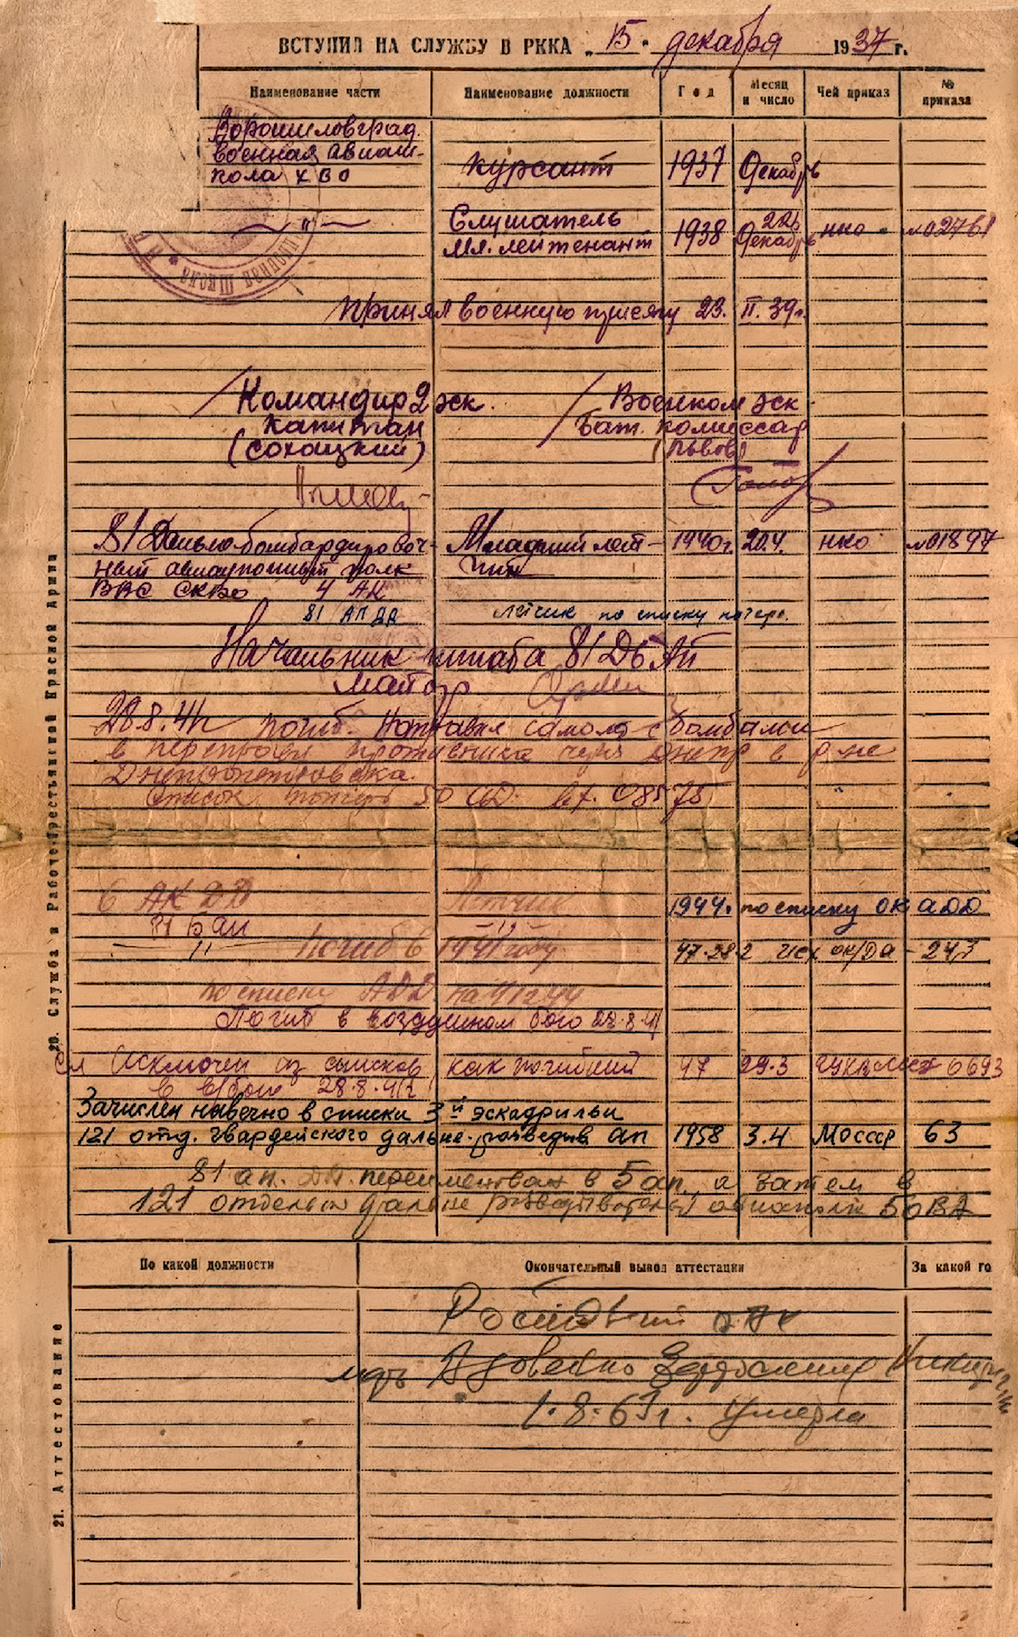 ВСТУПИЛ НА СЛУЖБУ В РККА „15" декабря 1937 г.
Наименование части Наименование должности Год Месяц и число Чей приказ № приказа
Ворошиловград.
военная авиаш-
кола ХВО курсант 1937 Декабрь
—"— Слушатель
Мл. лейтенант 1938 22 Декабрь НКО №02761
Принял военную присягу 23. II. 39г.
Командир 2 эск. Военком эск.
Капитан Бат. комиссар
(Сохацкий) (Львов)
81 Дально-бомбардировоч- Младший лет- 1940г. 20.4. НКО №01897
ный авиационный полк чик
ВВС СКВО 4 АК
81 АП ДД лётчик по списку потерь.
Начальник штаба 81 ДБАП
майор
28.8.41г погиб. Направил самолет с бомбами
в переправу противника через Днепр в р-не
Днепропетровска.
Список потерь 50 АД. вх. 08575
6 АК ДД Летчик 1944. по списку ОК АДД
81 БАП
—"— Погиб в 1941 году 47.28.2 исх ок/ДА - 243
по списку АДД на 1944
Погиб в воздушном бою 28.8.41
Исключен из списков как погибший 47 29.3 6693
в в/бою 28.8.41г
Зачислен навечно в списки 3й эскадрильи
121 отд. гвардейского дальне-разведыв. ап 1958 3.4 МОСССР 63
81 ап. ДД. переименован в 5 ап, а затем в
121 отдельн дальне разведывательн авиаполк 50 ВА
20. Служба в Рабоче-Крестьянской Красной Армии
По какой должности Окончательный вывод аттестации За какой го
мать Вдовенко
1.8.63г. умерла
21. Аттестование